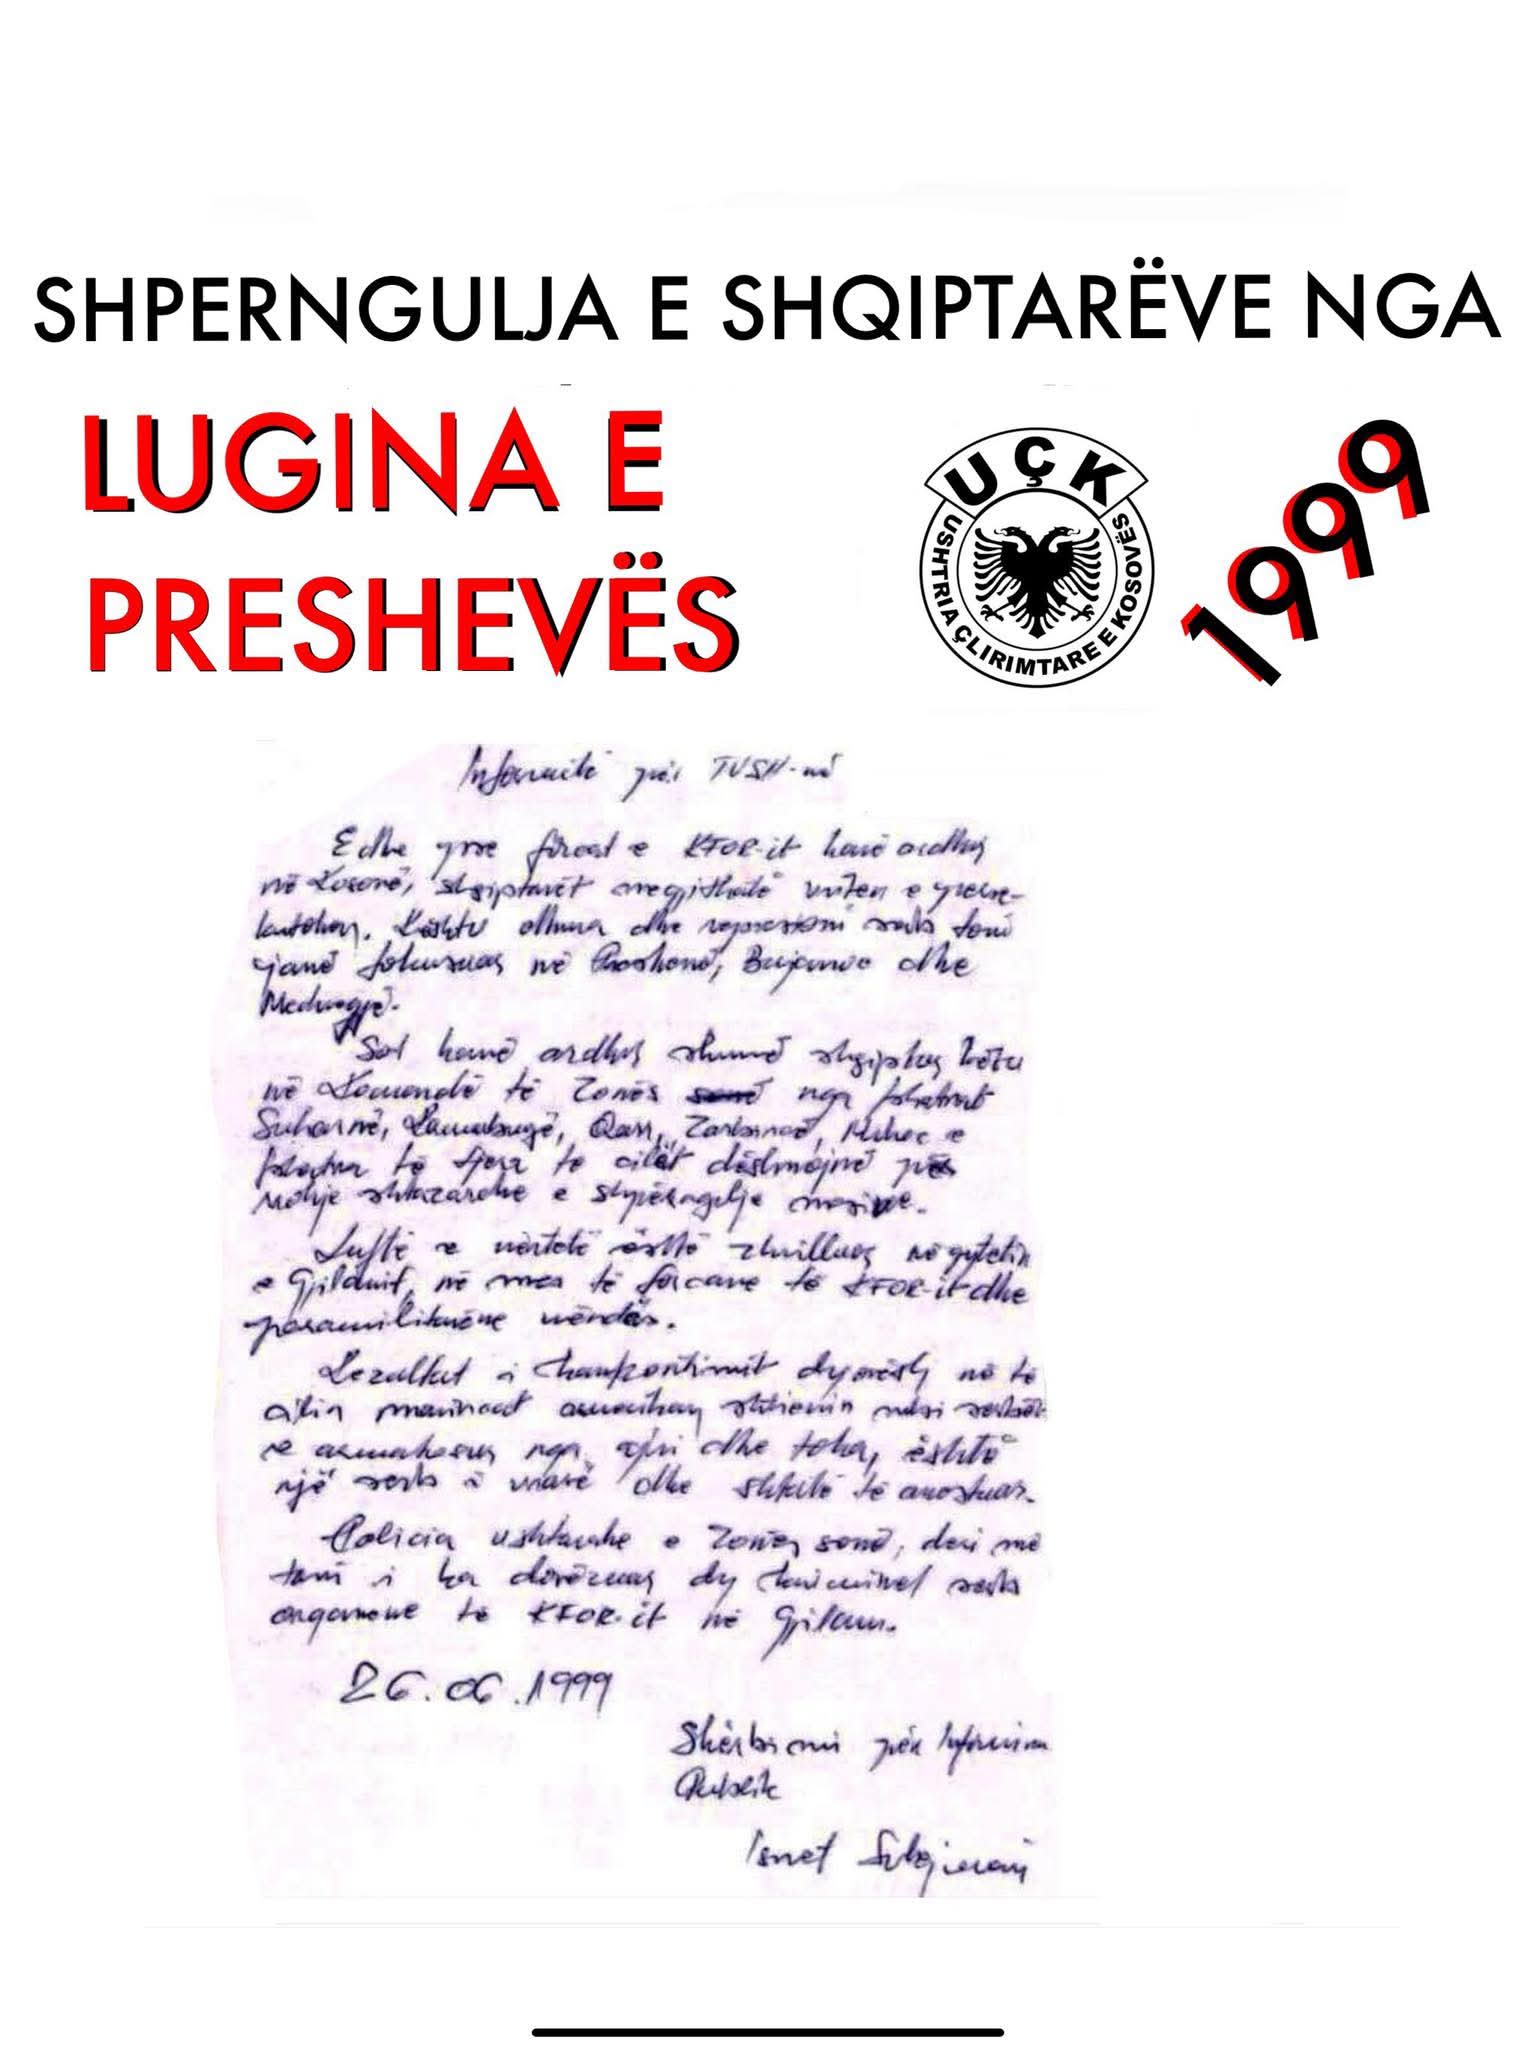 SHPERNGULJA E SHQIPTARËVE NGA
LUGINA E
PRESHEVËS
UÇK
USHTRIA ÇLIRIMTARE E KOSOVËS
1999
për TVSH-në
Edhe pse forcat e KFOR-it kanë ardhur
në Kosovë, shqiptarët megjithatë vriten e
Kështu dhuna dhe represioni serb tani
janë fokusuar në Preshevë, Bujanoc dhe
Medvegjë.
Sot kanë ardhur shumë shqiptar këtu
në Komandë të Zonës nga fshatrat
Suharnë, Ramabuqë, Qarr, Zarbincë, Muhoc e
fshatra të tjera të cilët dëshmojnë për
rrahje shtazarake e shpërngulje masive.
Luftë e vërtetë është zhvilluar në qytetin
e Gjilanit, në mes të forcave të KFOR-it dhe
paramilitarëve
Rezultat i konfrontimit dyorësh në të
cilin marinsat amerikan shtienin mbi serbët
e armatosur nga ajri dhe toka, është
një serb i vrarë dhe shtatë të arrestuar.
Policia ushtarake e Zonës sonë, deri më
tani i ka dorëzuar dy kriminel serb
organeve të KFOR-it në Gjilan.
26.06.1999
Shërbimi për Informim
Publik